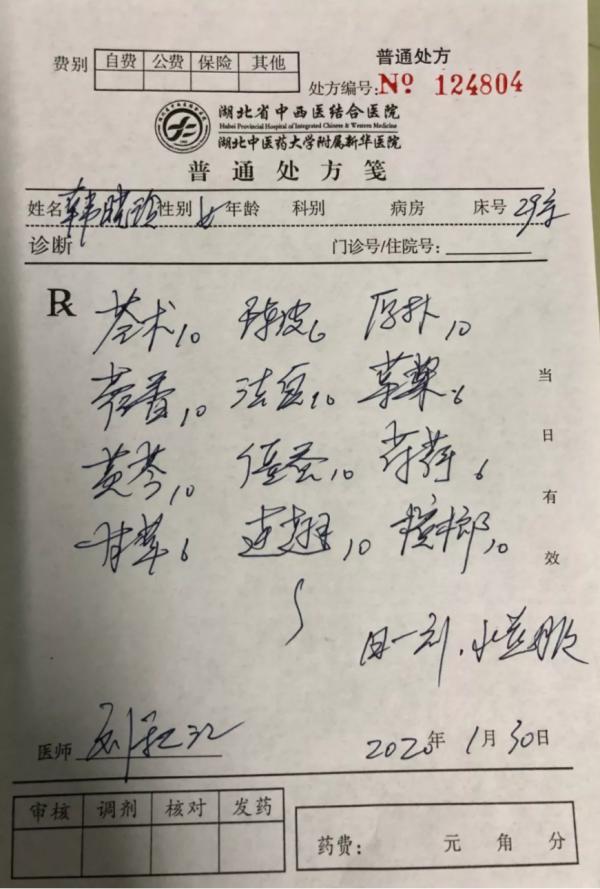 普通处方
费别 自费 公费 保险 其他
处方编号:Nº 124804
湖北省中西医结合医院
Hubei Provincial Hospital of Integrated Chinese & Western Medicine
湖北中医药大学附属新华医院
普通处方笺
姓名 韩 性别 女 年龄 科别 病房 床号 29
诊断 门诊号/住院号:
R 苍术10 陈皮6 厚朴10
藿香10 法夏10 草果6
黄芩10 僵蚕10 6
甘草6 连翘10 槟榔10
日一剂,水煎服
当日有效
医师 刘 2020年1月30日
审核 调剂 核对 发药
药费: 元 角 分